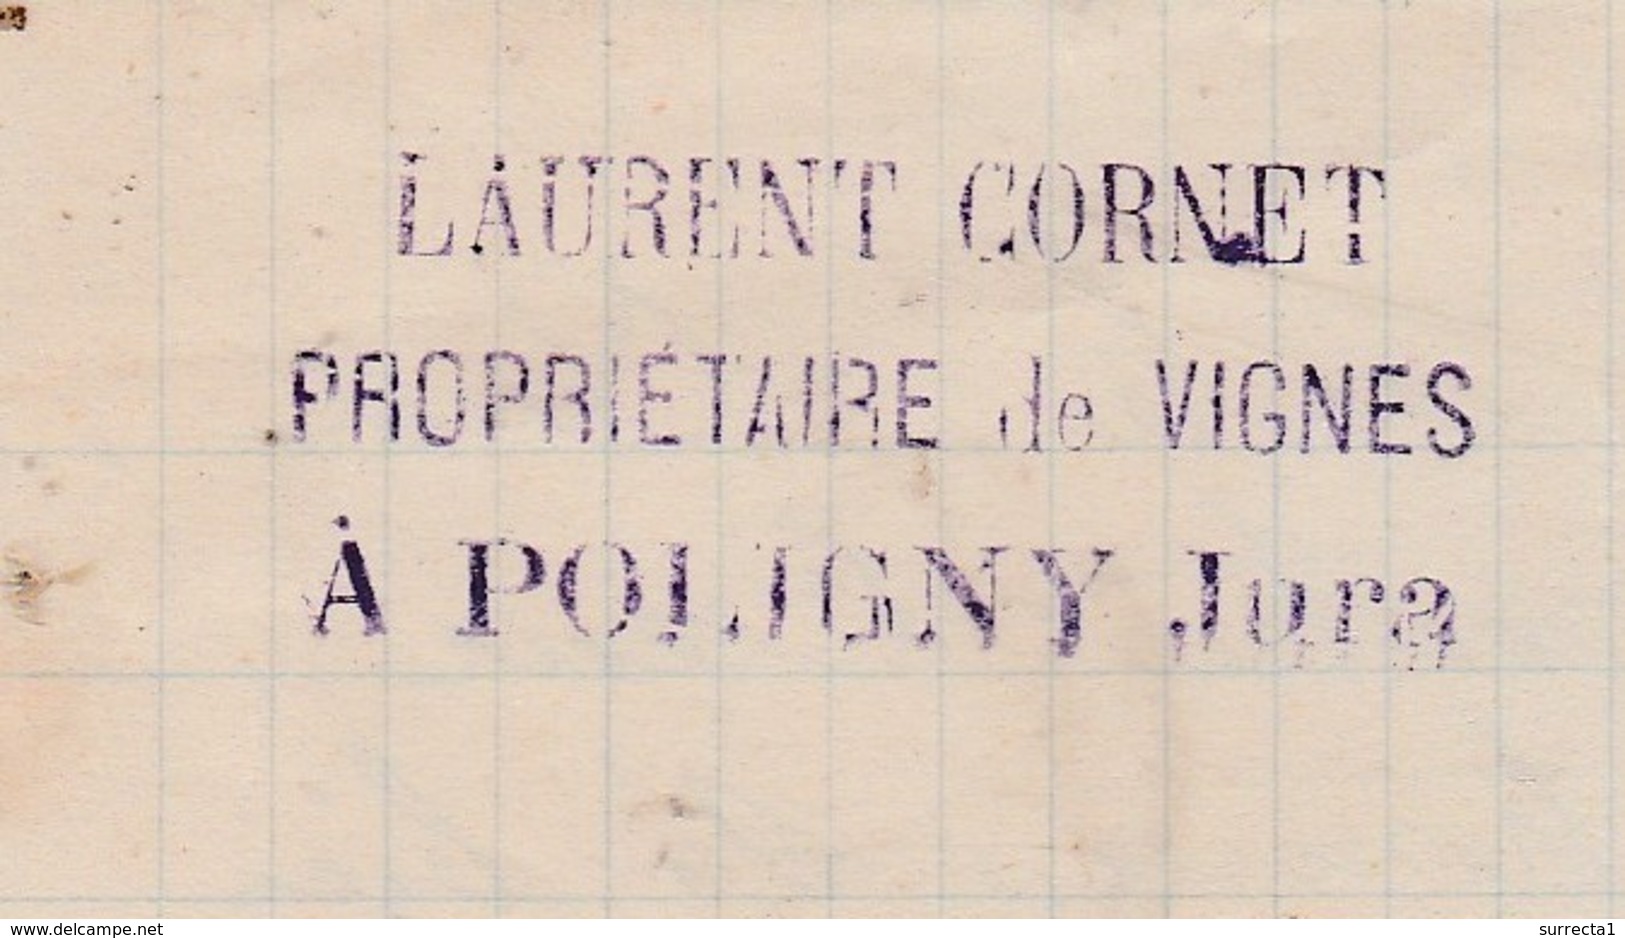 LAURENT CORNET
PROPRIÉTAIRE de VIGNES
À POLIGNY Jura
www.delcampe.net
surrecta1